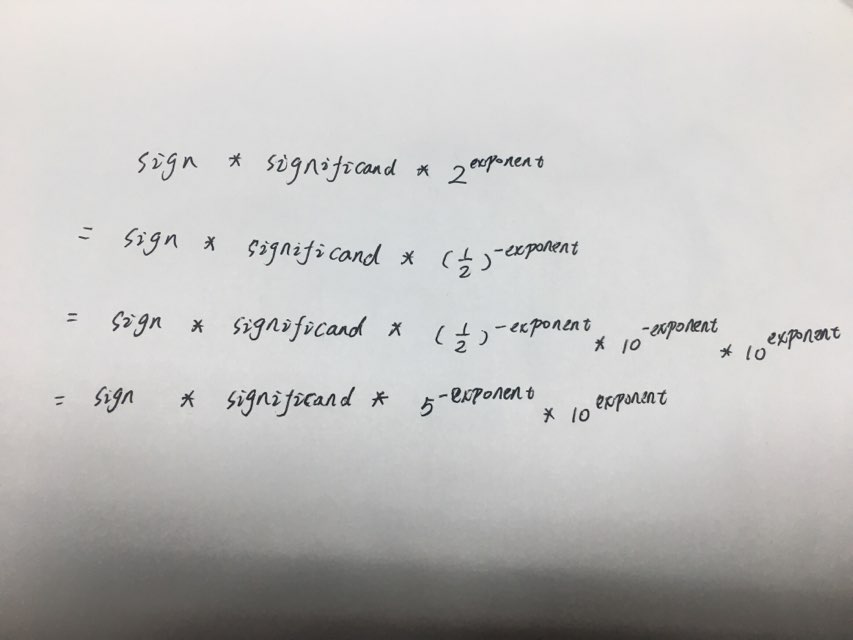 sign * significand * 2^exponent
= sign * significand * (1/2)^-exponent
= sign * significand * (1/2)^-exponent * 10^-exponent * 10^exponent
= sign * significand * 5^-exponent * 10^exponent